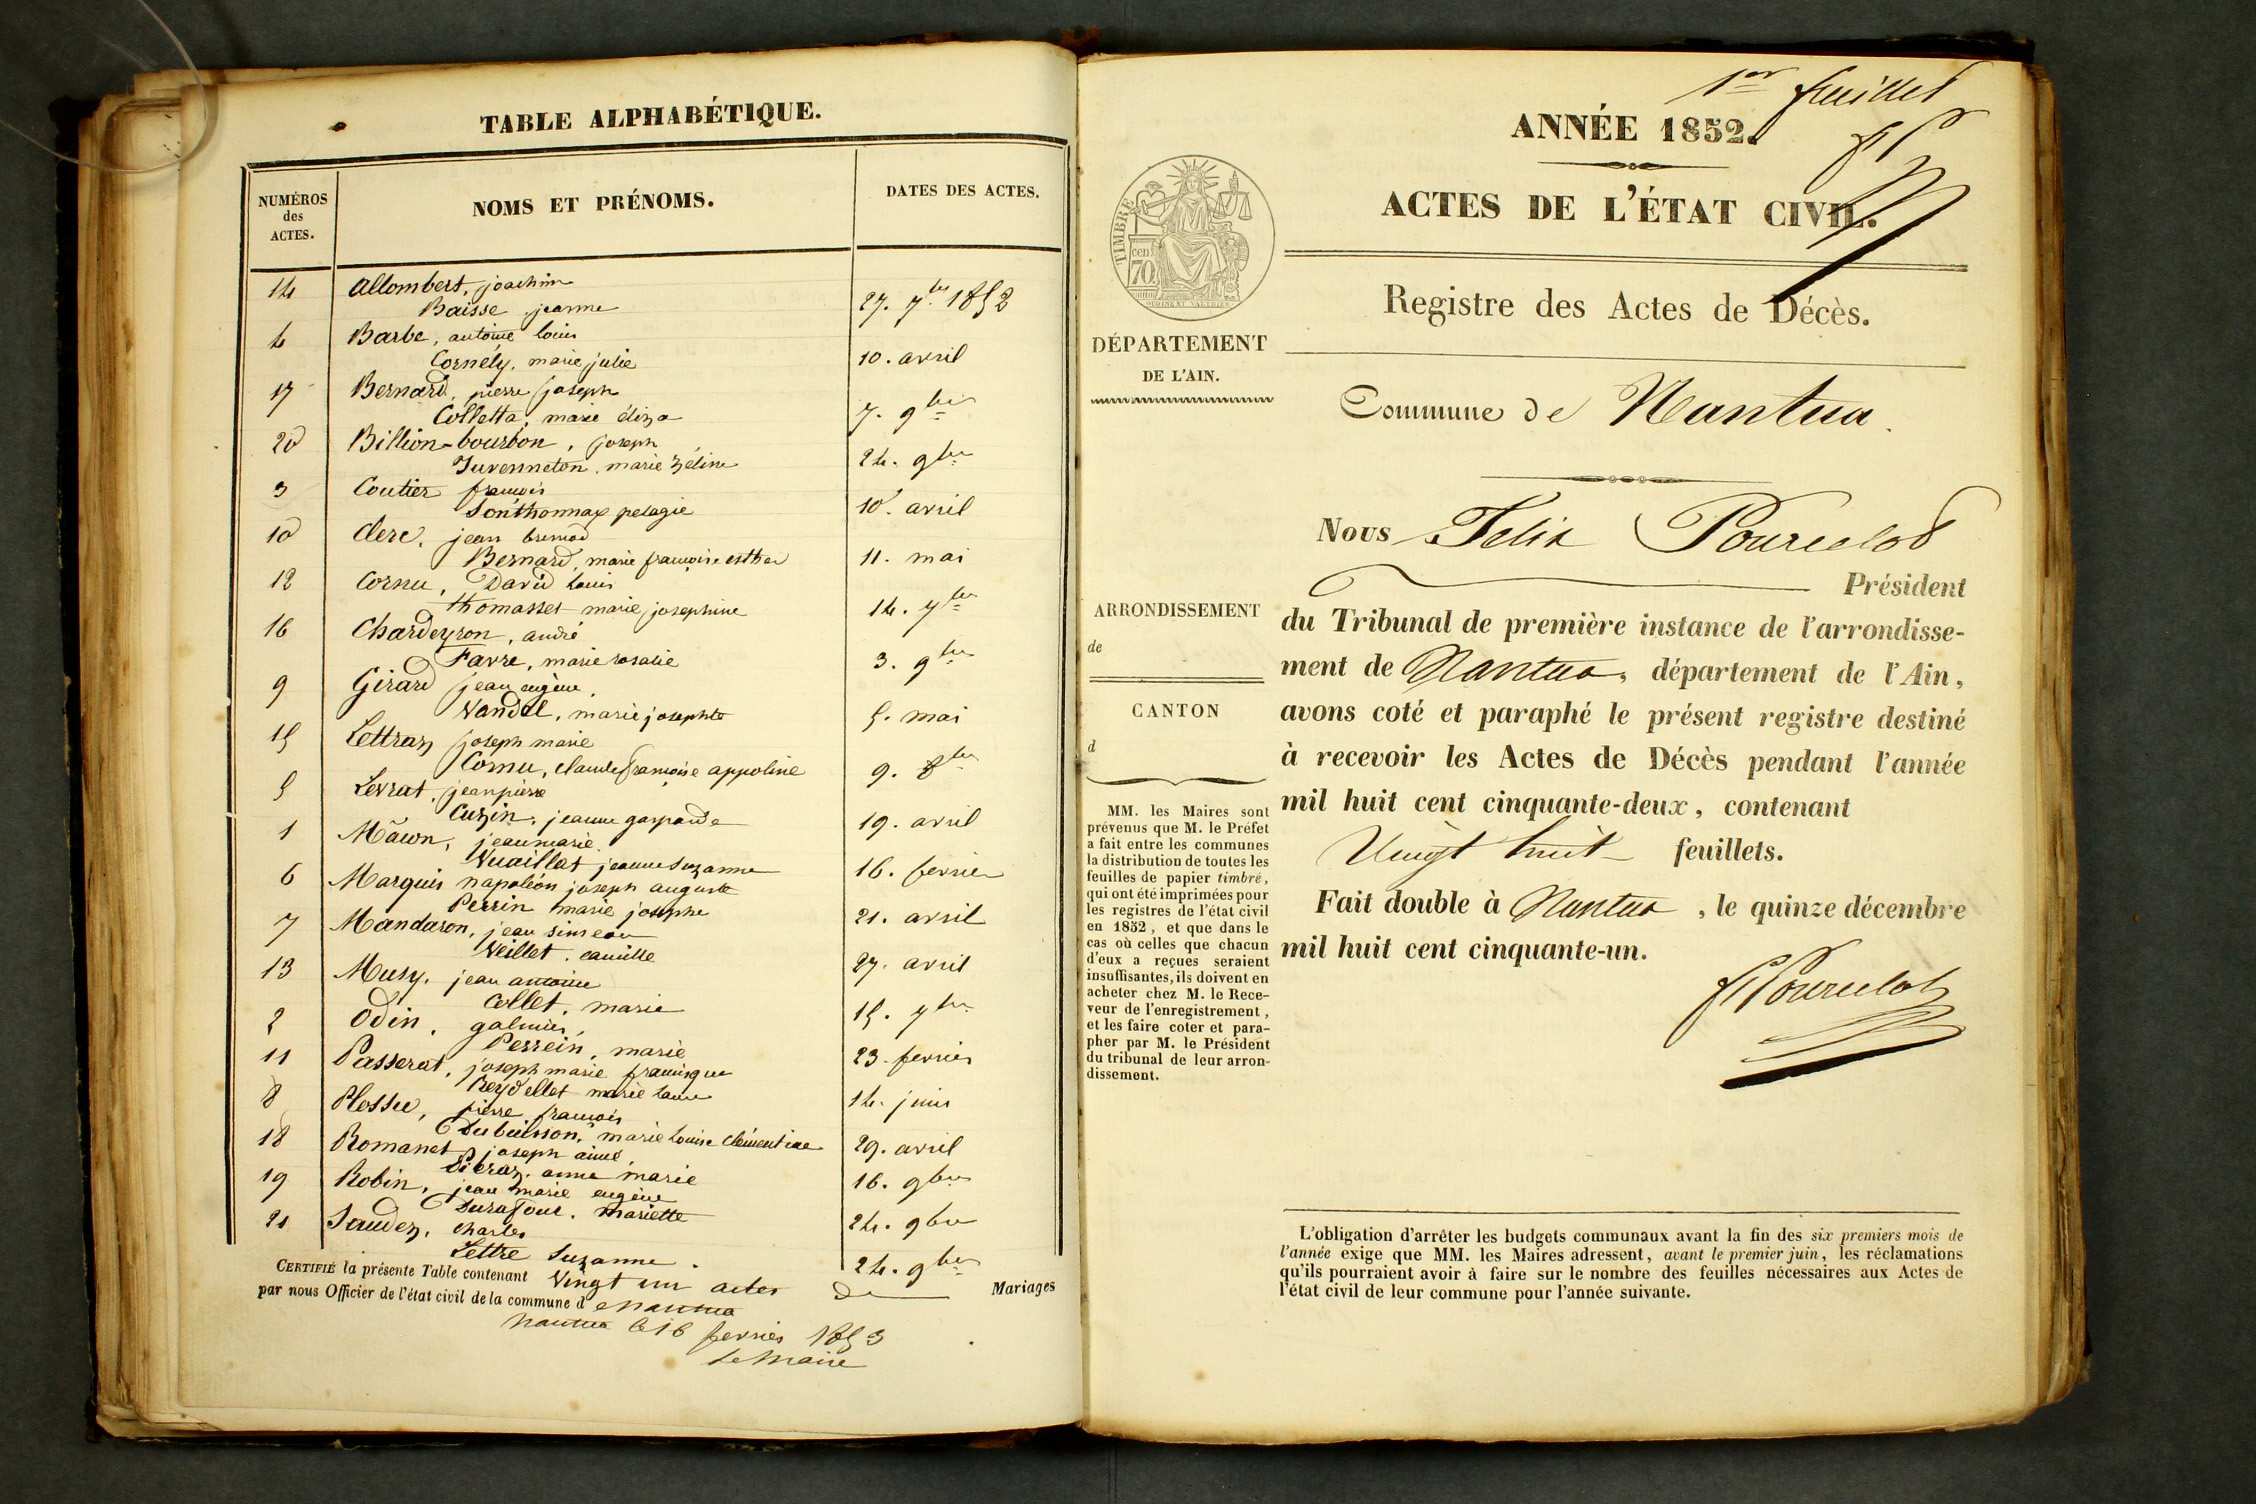 TABLE ALPHABÉTIQUE.
NUMÉROS
des
ACTES.
NOMS ET PRÉNOMS.
DATES DES ACTES.
14 Allombert, joachim
Baisse jeanne 27. 7bre 1852
4 Barbe, antoine louis
Cornély, marie julie 10. avril
17 Bernard, pierre joseph
Colletta, marie éliza 7. 9bre
20 Billion-bourbon, joseph
Juvenneton, marie zéline 24. 9bre
3 Coutier françois
Sonthonnax pelagie 10. avril
10 Clerc, jean
Bernard, marie françoise esther 11. mai
12 Cornu, David Louis
thomasset marie josephine 14. 7bre
16 Chardeyron, andré
Favre, marie rosalie 3. 9bre
9 Girard jean eugène,
Vandel, marie josephte 5. mai
15 Lettraz joseph marie
Cornu, claude françoise appoline 9. 8bre
5 Levrat, jean pierre
Cuzin, jeanne gasparde 19. avril
1 Mâcon, jean marie
Vuaillat jeanne Suzanne 16. fevrier
6 Marquis napoléon joseph auguste
Perrin marie josephe 21. avril
7 Mandaron, jean simeon
Veillet, camille 27. avril
13 Musy, jean antoine
Collet, marie 15. 7bre
2 Odin, galmier,
Perrein, marie 23. fevrier
11 Passerat, joseph marie françisque
Reydellet marie Laure 14. juin
8 Plossu, pierre françois
Dubuisson, marie Louise Clémentine 29. avril
18 Romanet joseph aimé
anne marie 16. 9bre
19 Robin, jean marie eugène
Durafour, Mariette 24. 9bre
21 Saudez, charles
Lettre Suzanne. 24. 9bre
CERTIFIÉ la présente Table contenant Vingt un actes de Mariages
par nous Officier de l'état civil de la commune d e Nantua
Nantua le 16 fevrier 1853
Le Maire
1er feuillet
ANNÉE 1852.
ACTES DE L'ÉTAT CIVIL.
Registre des Actes de Décès.
TIMBRE
cen
70
DÉPARTEMENT
DE L'AIN.
Commune de Nantua.
Nous Felix Pourcelot
Président
du Tribunal de première instance de l'arrondisse-
ment de Nantua, département de l'Ain,
avons coté et paraphé le présent registre destiné
à recevoir les Actes de Décès pendant l'année
mil huit cent cinquante-deux, contenant
Vingt huit feuillets.
Fait double à Nantua, le quinze décembre
mil huit cent cinquante-un.
F Pourcelot
ARRONDISSEMENT
de
CANTON
d
MM. les Maires sont
prévenus que M. le Préfet
a fait entre les communes
la distribution de toutes les
feuilles de papier timbré,
qui ont été imprimées pour
les registres de l'état civil
en 1852, et que dans le
cas où celles que chacun
d'eux a reçues seraient
insuffisantes, ils doivent en
acheter chez M. le Rece-
veur de l'enregistrement,
et les faire coter et para-
pher par M. le Président
du tribunal de leur arron-
dissement.
L'obligation d'arrêter les budgets communaux avant la fin des six premiers mois de
l'année exige que MM. les Maires adressent, avant le premier juin, les réclamations
qu'ils pourraient avoir à faire sur le nombre des feuilles nécessaires aux Actes de
l'état civil de leur commune pour l'année suivante.